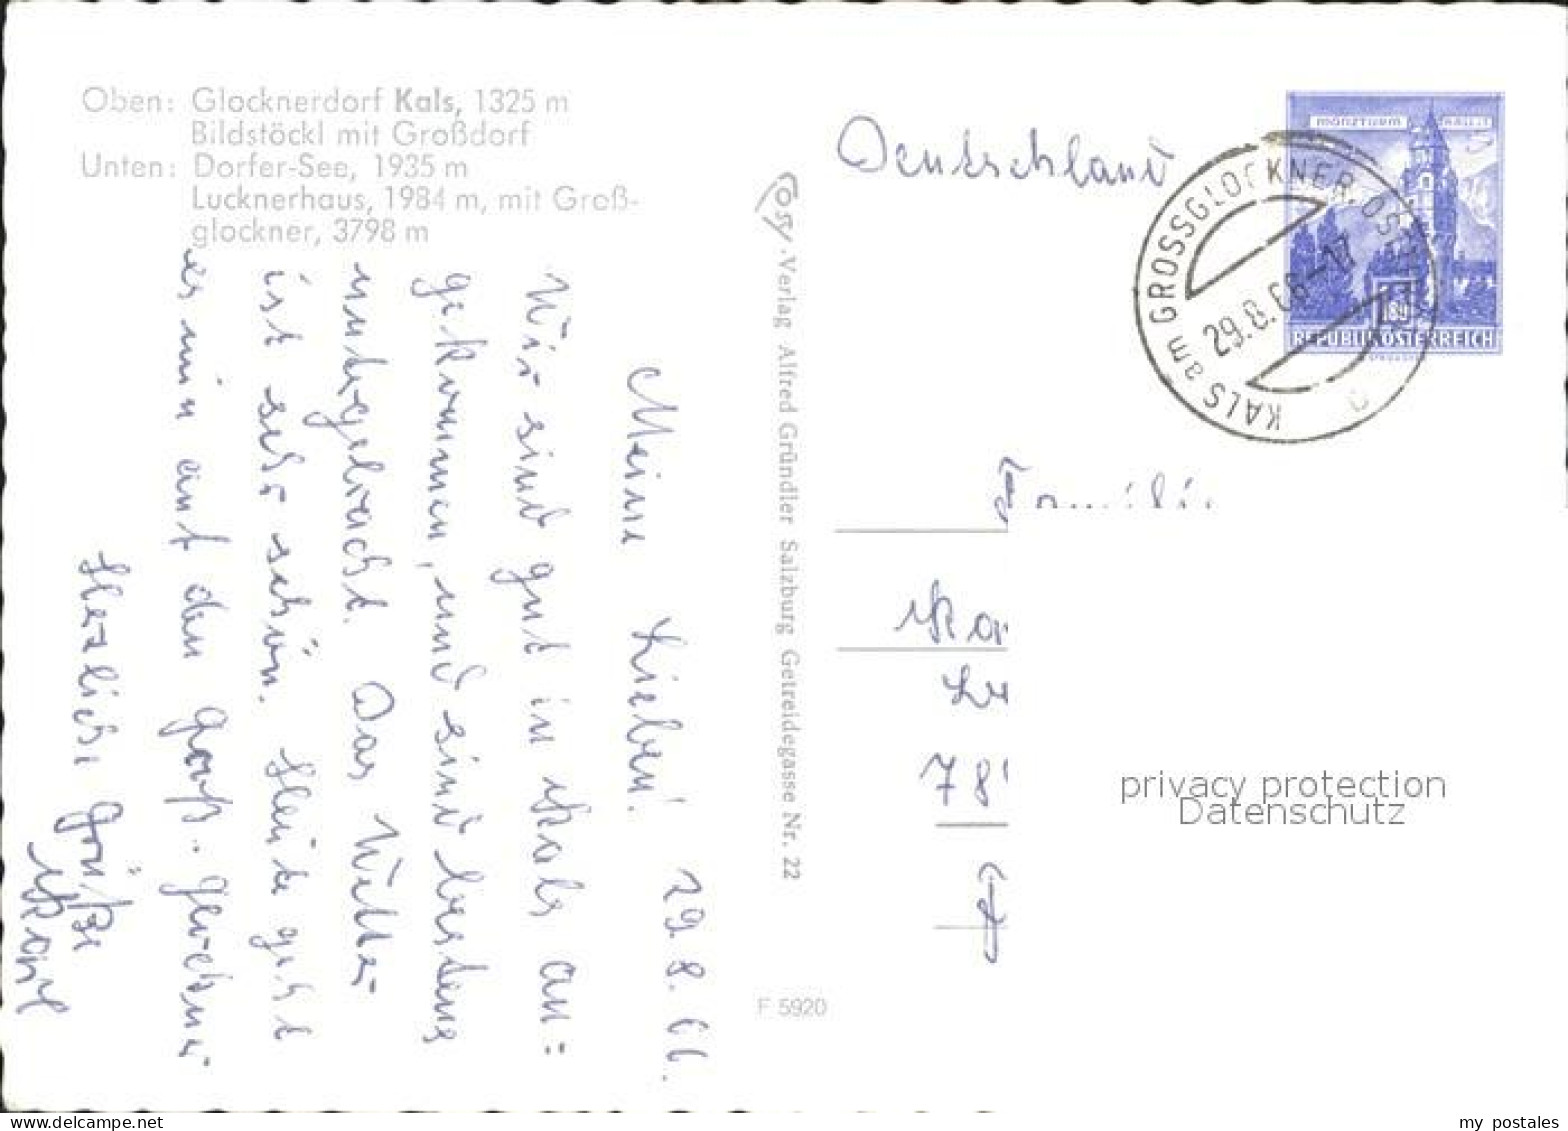 Oben: Glocknerdorf Kals, 1325 m
Bildstöckl mit Großdorf
Unten: Dorfer-See, 1935 m
Lucknerhaus, 1984 m, mit Groß-
glockner, 3798 m
29.8.66.
Meine Lieben!
Wir sind gut in Kals an=
gekommen, und sind bestens
untergebracht. Das Wetter
ist sehr schön. Heute geht
es nun auf den Groß-Glockner
Herzliche Grüße
Karl
Cosy-Verlag Alfred Gründler Salzburg Getreidegasse Nr. 22
F 5920
Deutschland
MÜNZTURM HALL i. T.
REPUBLIK ÖSTERREICH
KALS am GROSSGLOCKNER, OSTTIROL
29.8.66-17
Familie
Kar
78
privacy protection
Datenschutz
www.delcampe.net
my_postales